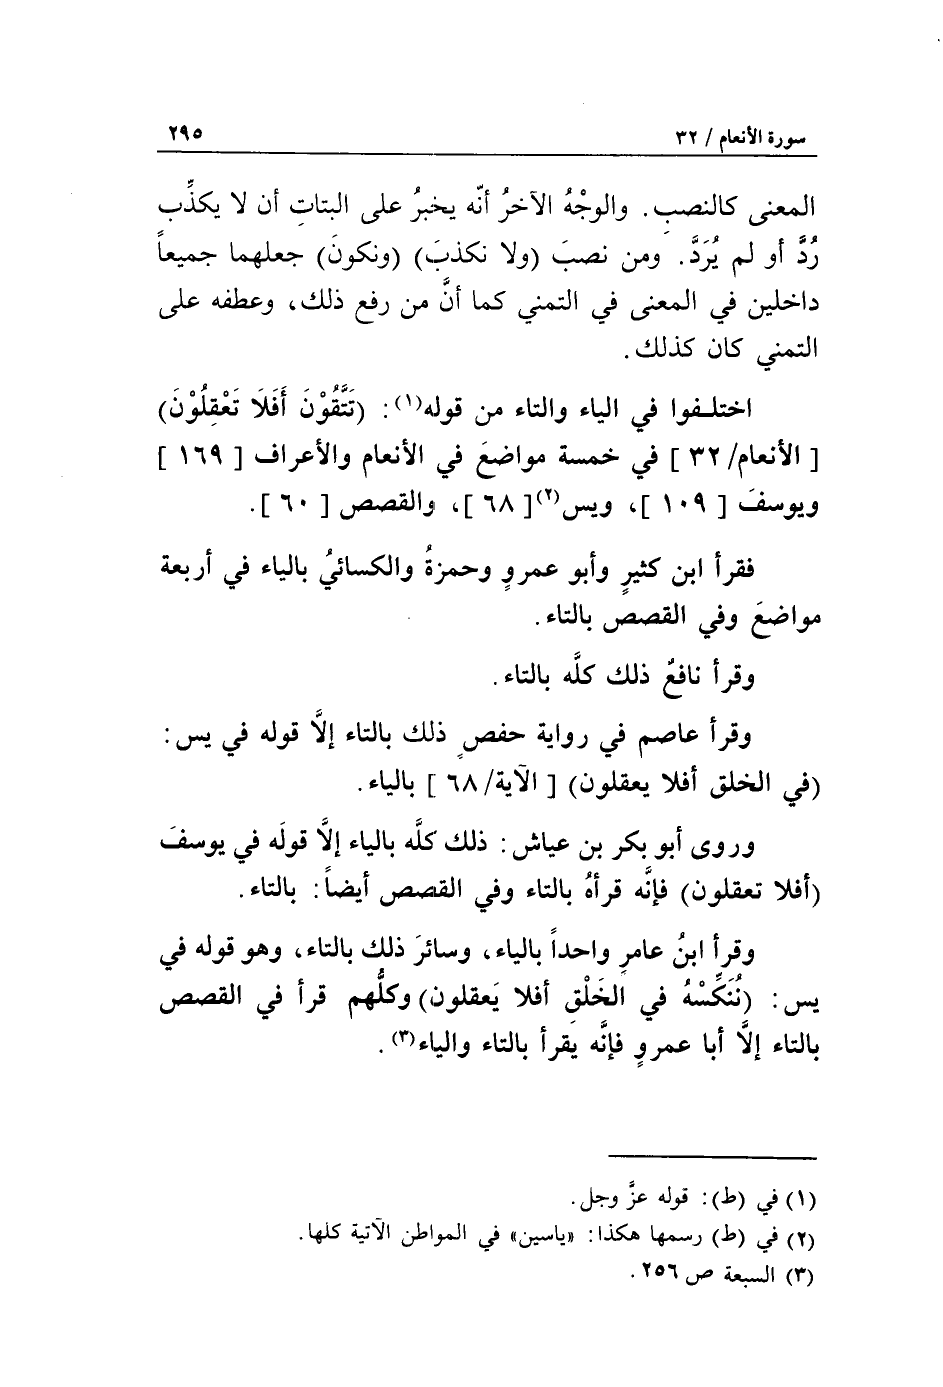 سورة الأنعام / ٣٢
٢٩٥
المعنى كالنصبِ. والوجْهُ الآخرُ أنّه يخبرُ على البتاتِ أن لا يكذِّب
رُدَّ أو لم يُرَدَّ. ومن نصبَ (ولا نكذبَ) (ونكونَ) جعلهما جميعاً
داخلين في المعنى في التمني كما أنَّ من رفع ذلك، وعطفه على
التمني كان كذلك.
اختلـفوا في الياء والتاء من قوله(١): (تَتَّقُوْنَ أَفَلَا تَعْقِلُوْنَ)
[الأنعام/ ٣٢] في خمسة مواضعَ في الأنعام والأعراف [١٦٩]
ويوسفَ [١٠٩]، ويس(٢)[٦٨]، والقصص [٦٠].
فقرأ ابن كثيرٍ وأبو عمروٍ وحمزةُ والكسائيُ بالياء في أربعة
مواضعَ وفي القصص بالتاء.
وقرأ نافعٌ ذلك كلَّه بالتاء.
وقرأ عاصم في رواية حفصٍ ذلك بالتاء إلَّا قوله في يس:
(في الخلق أفلا يعقلون) [الآية/ ٦٨] بالياء.
وروى أبو بكر بن عياش: ذلك كلَّه بالياء إلَّا قولَه في يوسفَ
(أفلا تعقلون) فإنَّه قرأهُ بالتاء وفي القصص أيضاً: بالتاء.
وقرأ ابنُ عامرٍ واحداً بالياء، وسائرَ ذلك بالتاء، وهو قوله في
يس: (نُنَكِّسْهُ في الخَلْقِ أفلا يَعقلون) وكلُّهم قرأ في القصص
بالتاء إلَّا أبا عمروٍ فإنَّه يقرأ بالتاء والياء(٣).
(١) في (ط): قوله عزَّ وجل.
(٢) في (ط) رسمها هكذا: «ياسين» في المواطن الآتية كلها.
(٣) السبعة ص ٢٥٦.